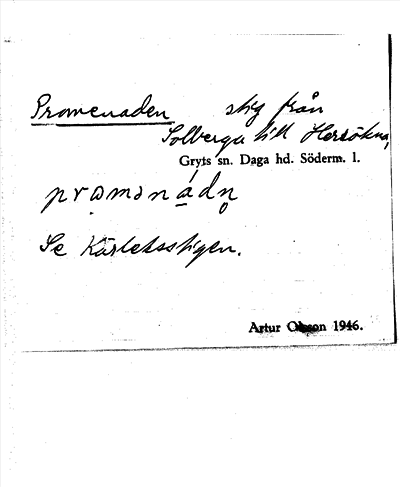 Promenaden stig från
Solberga till Hersökna,
Gryts sn. Daga hd. Söderm. l.
prɷmənádn̥
Se Kärleksstigen.
Artur Olsson 1946.